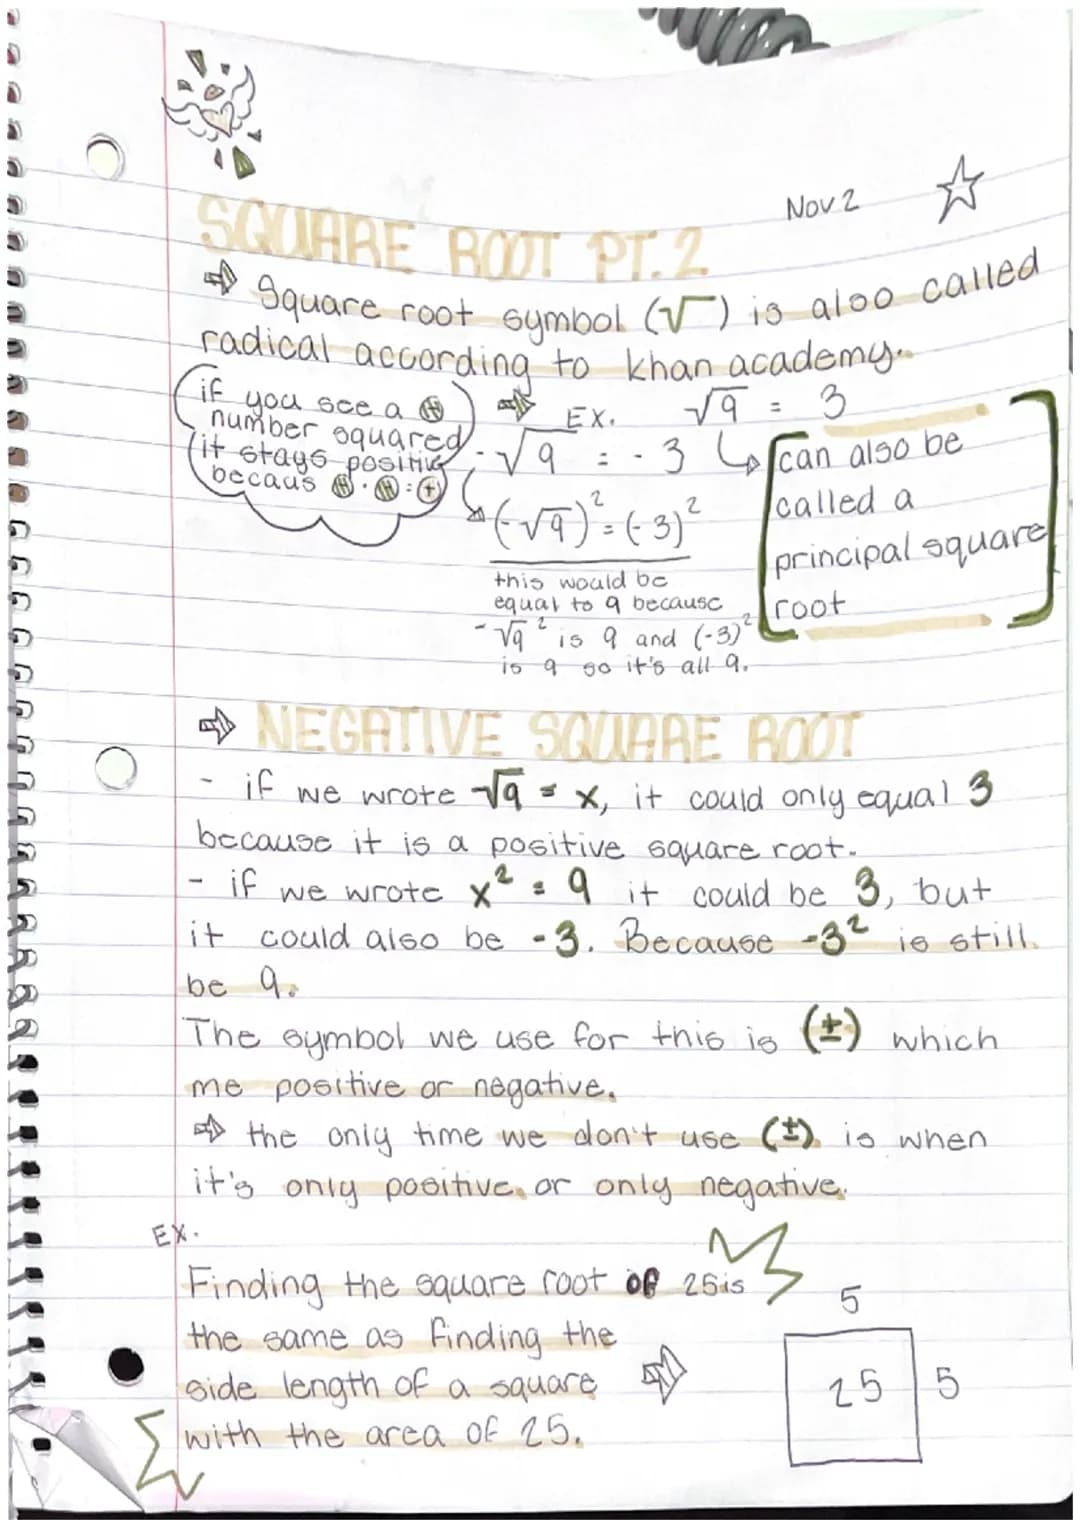 Nov 2
SQUARE ROOT PT.2
⇒ Square root symbol (√ ) is also called
radical according to khan academy.
if you see a (+)
number squared
it stays positive
becaus (+) · (+) = (+)
⇒ EX. √9 = 3
-√9 = -3
(-√9)² = (-3)²
this would be
equal to 9 because
-√9² is 9 and (-3)²
is 9 so it's all 9.
can also be
called a
principal square
root
⇒ NEGATIVE SQUARE ROOT
- if we wrote √9 = x, it could only equal 3
because it is a positive square root.
- if we wrote x² = 9 it could be 3, but
it could also be -3. Because -3² is still
be 9.
The symbol we use for this is (±) which
me positive or negative.
⇒ the only time we don't use (±) is when
it's only positive, or only negative.
EX.
Finding the square root of 25 is
the same as finding the
side length of a square
with the area of 25.
5
25 5